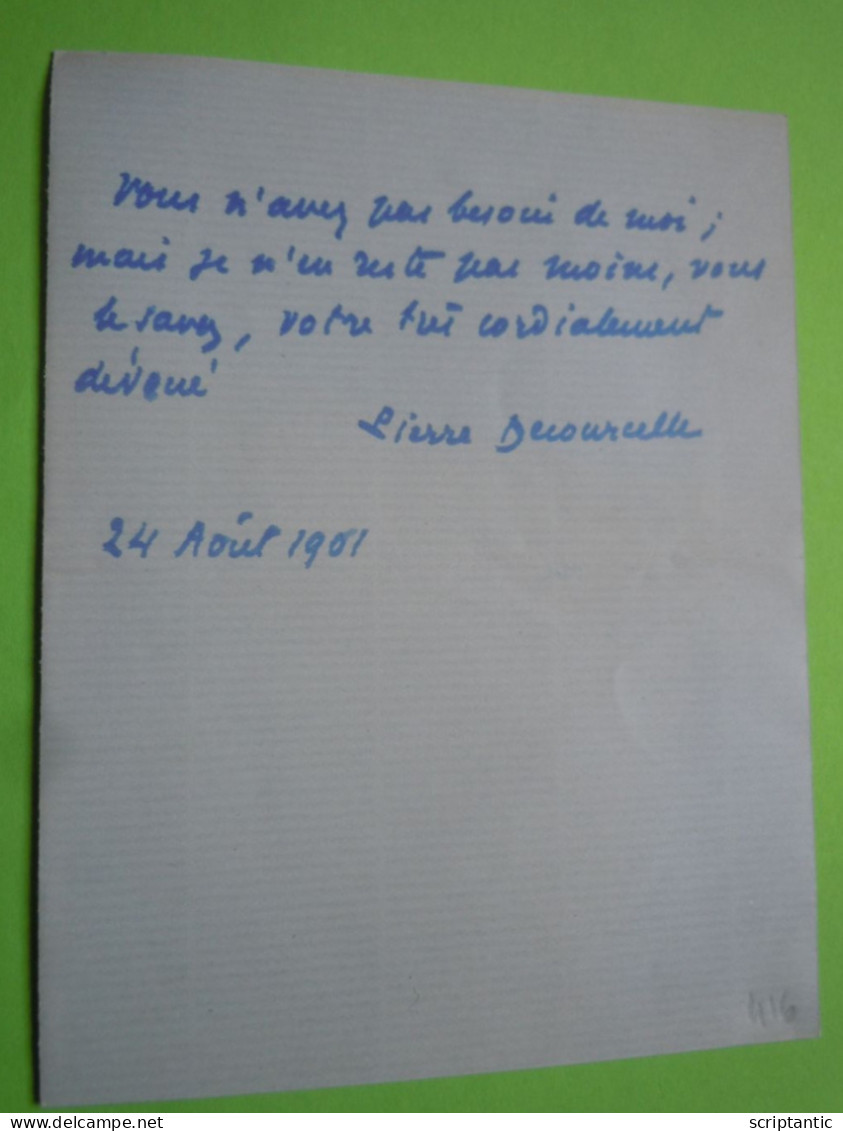 Vous n'avez pas besoin de moi ;
mais je n'en reste pas moins, vous
le savez, votre très cordialement
dévoué
Pierre Decourcelle
24 Août 1901
416
scriptantic